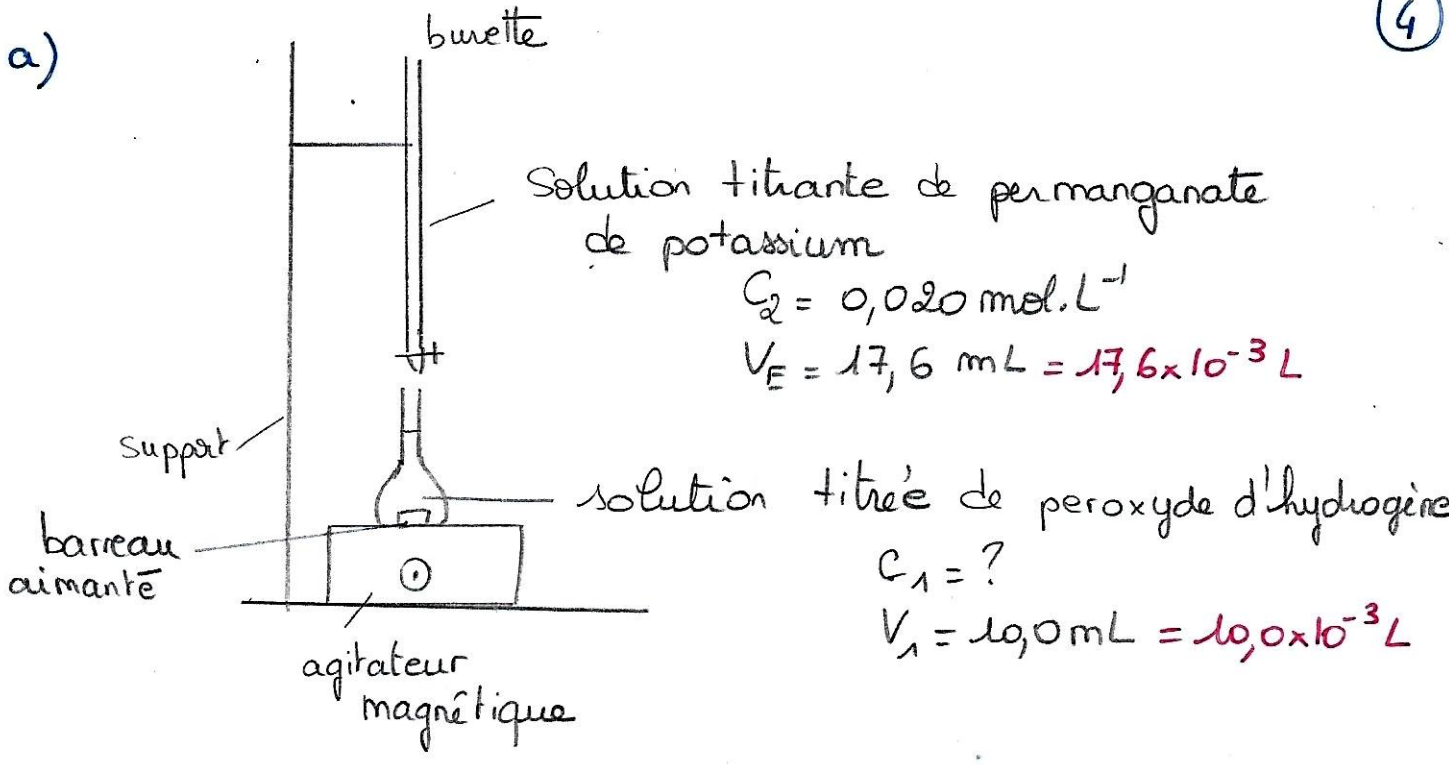 4
a)
burette
Solution titrante de permanganate
de potassium
C₂ = 0,020 mol.L⁻¹
V_E = 17,6 mL = 17,6×10⁻³ L
support
solution titrée de peroxyde d'hydrogène
barreau
aimanté
C₁ = ?
V₁ = 10,0 mL = 10,0×10⁻³ L
agitateur
magnétique